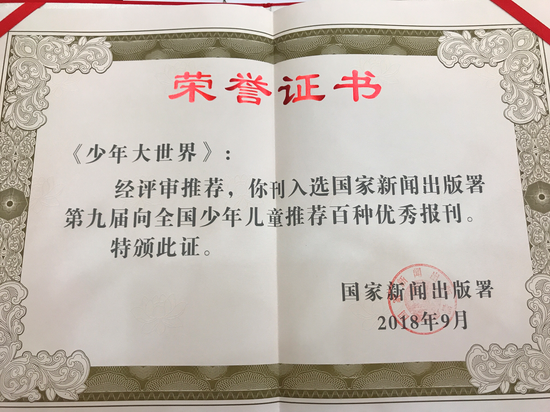 荣誉证书
《少年大世界》：
经评审推荐，你刊入选国家新闻出版署
第九届向全国少年儿童推荐百种优秀报刊。
特颁此证。
国家新闻出版署
2018年9月